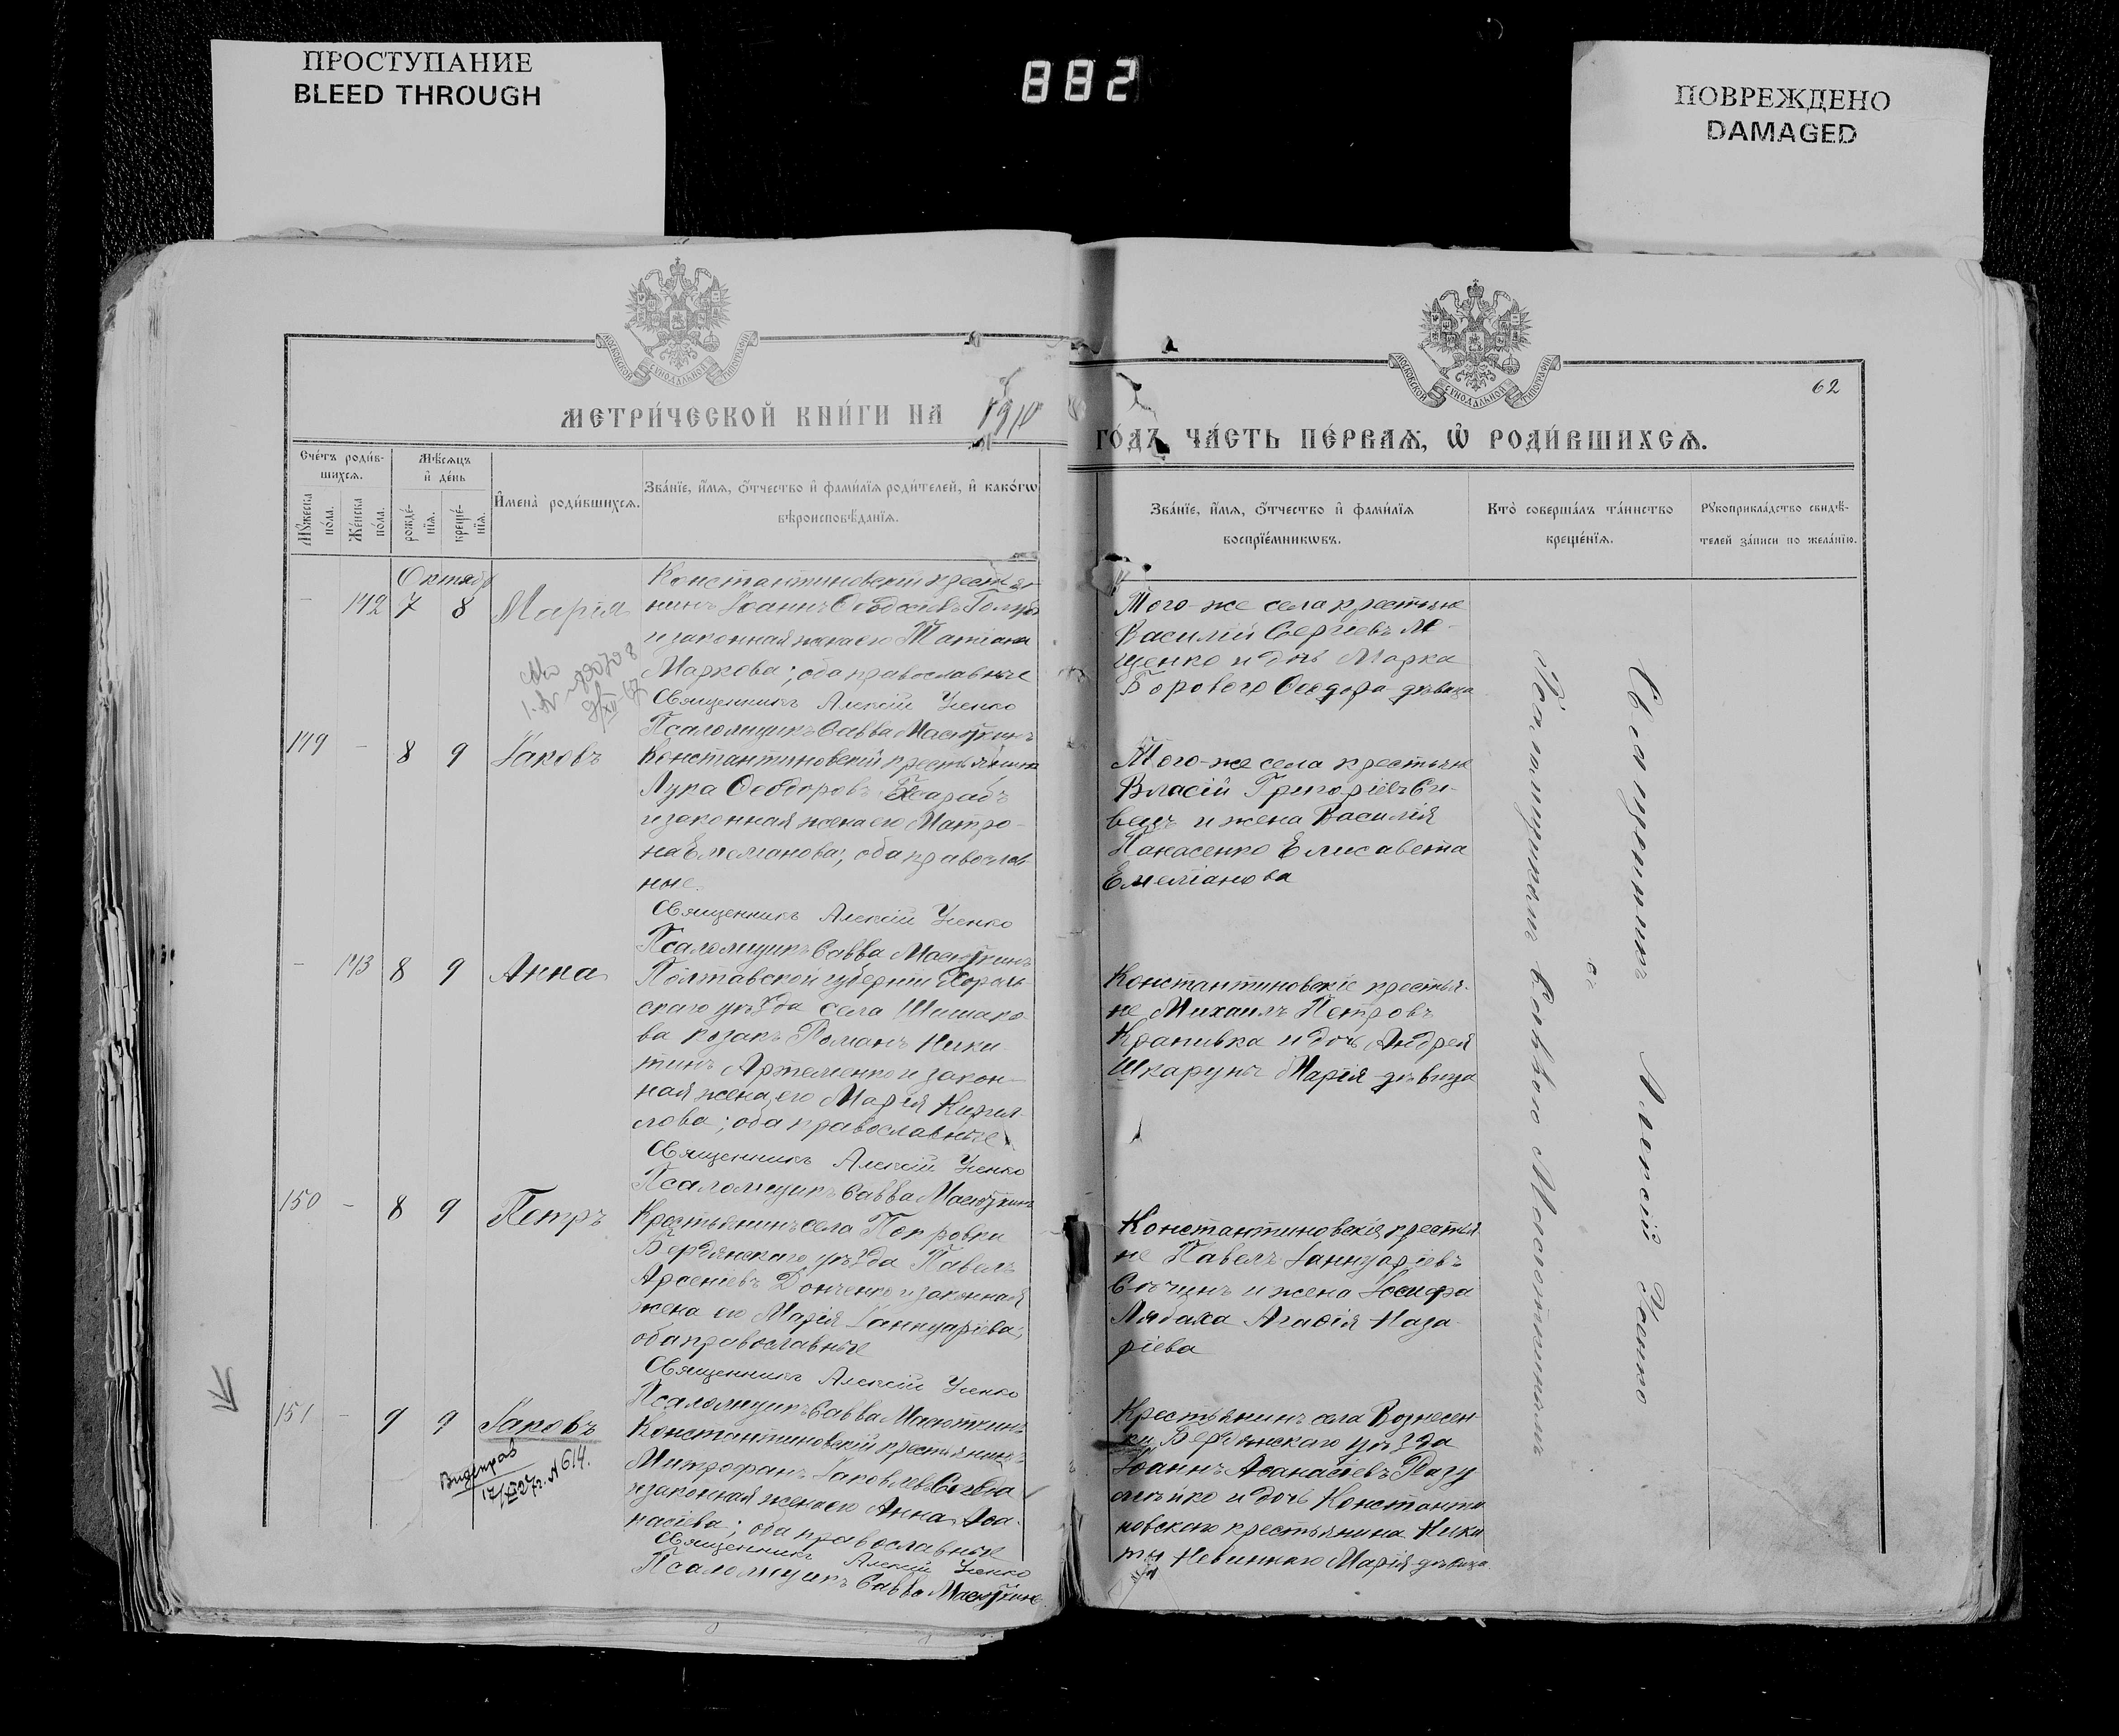 ПРОСТУПАНИЕ
BLEED THROUGH
882
ПОВРЕЖДЕНО
DAMAGED
МОСКОВСКОЙ СѴНОДАЛЬНОЙ ТИПОГРАФІИ
МОСКОВСКОЙ СѴНОДАЛЬНОЙ ТИПОГРАФІИ
62
МЕТРИ́ЧЕСКОЙ КНИ́ГИ НА 1910
ГО́ДЪ, ЧА́СТЬ ПЕ́РВАѦ, Ѡ҆ РОДИ́ВШИХСѦ.
Сче́тъ роди́в-
шихсѧ.
Мꙋ́жеска по́ла.
Же́нска по́ла.
Мѣ́сѧцъ
и҆ де́нь
рожде́-
нїѧ.
креще́-
нїѧ.
И҆мена̀ роди́вшихсѧ.
Зва́нїе, и҆́мѧ, ѻ҆́тчество и҆ фами́лїѧ роди́телей, и҆ како́гѡ
вѣроисповѣ́данїѧ.
Зва́нїе, и҆́мѧ, ѻ҆́тчество и҆ фами́лїѧ
воспрїе́мникѡвъ.
Кто̀ соверша́лъ та́инство
креще́нїѧ.
Рꙋкоприкла́дство свидѣ́-
телей за́писи по жела́нїю.
Октябр
- 142 7 8 Марія
Константиновскій крестья-
нинъ Іоаннъ
и законная жена его Татіана
Маркова; оба православные
Священникъ Алексій Усенко
Псаломщикъ Савва Масюткинъ
Того-же села крестьяне
Василій Сергіевъ
щенко и дочь Марка
Борового Ѳеодора дѣвица
149 - 8 9 Іаковъ
Константиновскій крестьянинъ
Лука Ѳеодоровъ
и законная жена его Матро-
на Емеліанова; оба православ
ные.
Священникъ Алексій Усенко
Псаломщикъ Савва Масюткинъ
Того-же села крестьяне
Власій Григоріевъ Си-
вецъ и жена Василія
Панасенко Елисавета
Емеліанова
- 143 8 9 Анна
Полтавской губерніи Хороль-
скаго уѣзда села Шишако-
ва козакъ Романъ Ники-
тинъ Артеменко и закон-
ная жена его Марія Кирил-
лова; оба православные
Священникъ Алексій Усенко
Псаломщикъ Савва Масюткинъ
Константиновскіе крестья-
не Михаилъ Петровъ
Крапивка и дочь Андрея
Шкарупы Марія дѣвица
150 - 8 9 Петръ
Крестьянинъ села Покровки
Бердянскаго уѣзда Павелъ
Арсеніевъ Донченко и законная
жена его Марія Іаннуаріева;
оба православные
Священникъ Алексій Усенко
Псаломщикъ Савва Масюткинъ
Константиновскія крестья
не Павелъ Іаннуаріевъ
и жена Іосифа
Лябаха Агаѳія Наза-
ріева
151 - 9 9 Іаковъ
№ 614.
Константиновскій крестьянинъ
Митрофанъ Іаковлевъ
и законная жена его Анна Аѳа-
насіева; оба православные
Священникъ Алексій Усенко
Псаломщикъ Савва Масюткинъ
Крестьянинъ села Вознесен-
ки Бердянскаго уѣзда
Іоаннъ Аѳанасіевъ Разу
мѣйко и дочь Константи
новскаго крестьянина Ники
ты Невиннаго Марія дѣвица.
Священникъ Алексій Усенко
съ
Псаломщикомъ Саввою Масюткинымъ